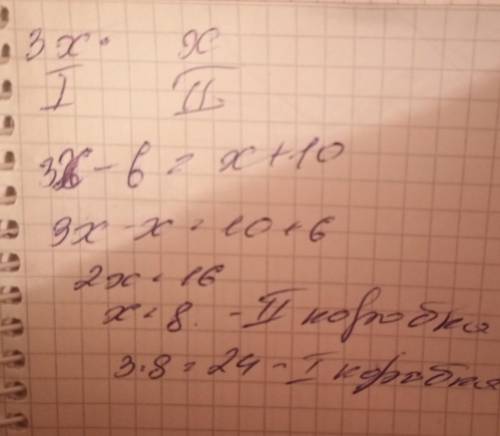 3x x
I II
3x - 6 = x + 10
3x - x = 10 + 6
2x = 16
x = 8. - II коробка
3·8 = 24 - I коробка